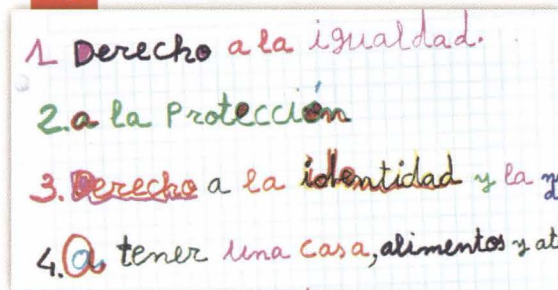 1 Derecho a la igualdad.
2. a la Protección
3. Derecho a la identidad y la
4. a tener una casa, alimentos y